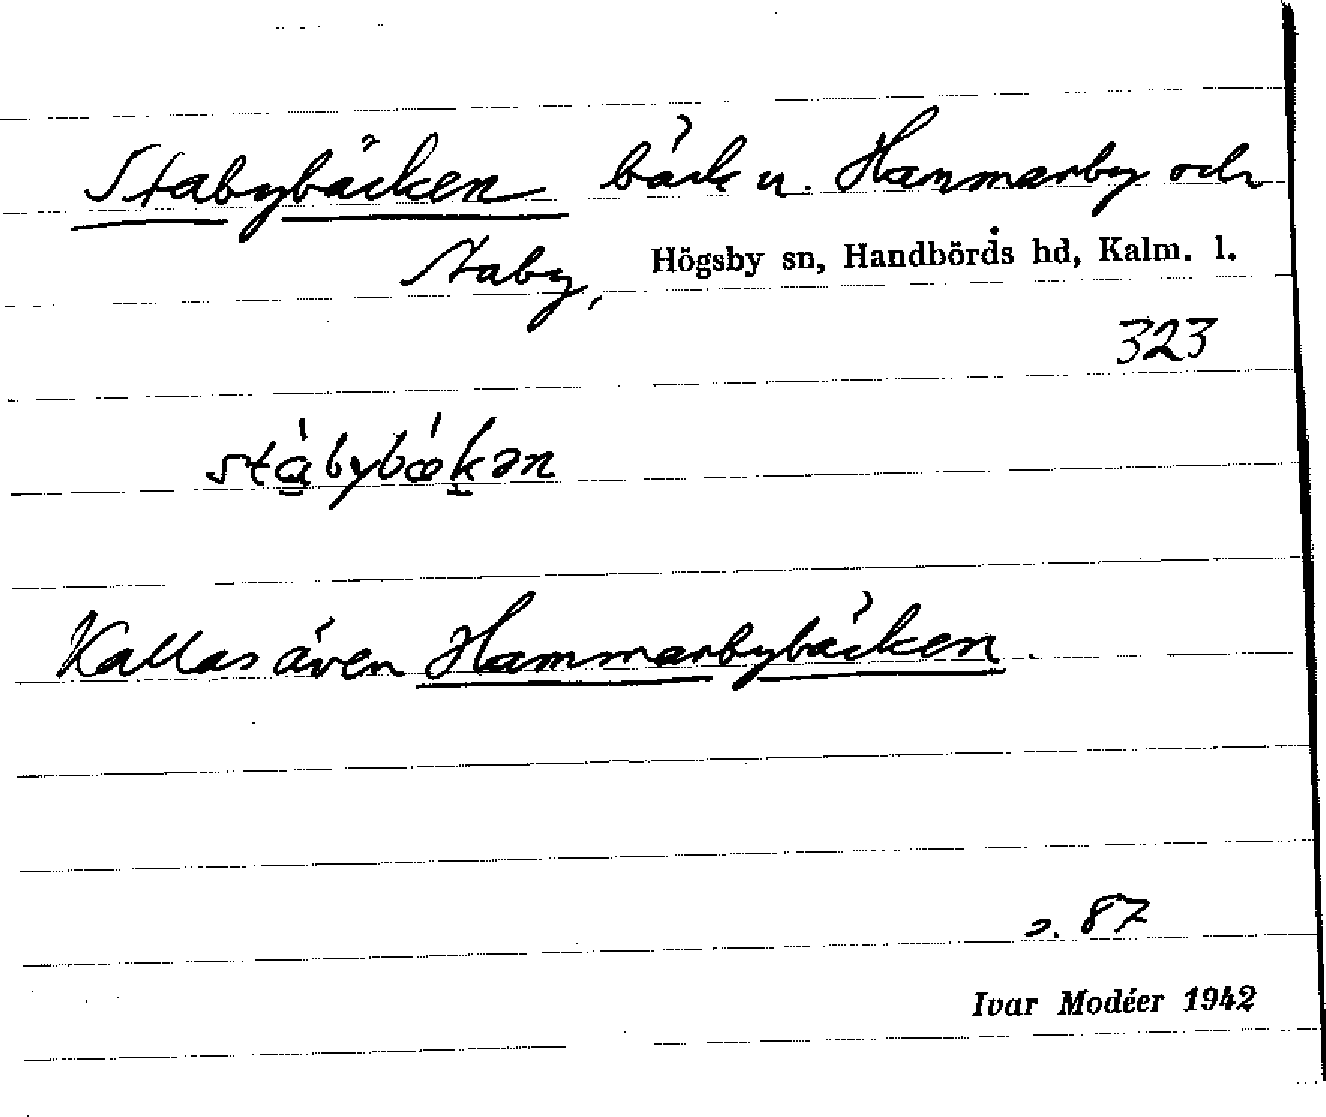 Stabybäcken bäck u. Hammarby och
Staby, Högsby sn, Handbörds hd, Kalm. l.
323
stábybǽkən
Kallas även Hammarbybäcken.
s. 87
Ivar Modéer 1942